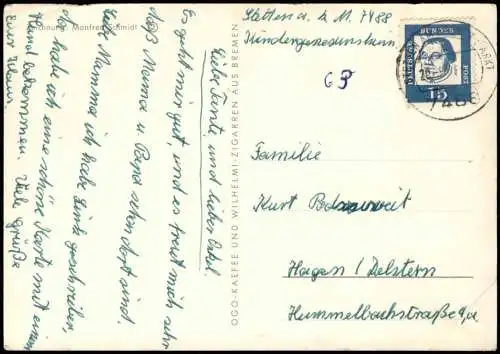 Zeichnung: Manfred Schmidt
Liebe Tante, und lieber Onkel.
Es geht mir gut, und es freut mich sehr
daß Mama u. Papa schon dort sind.
Liebe Mamma ich habe Euch geschrieben,
da habe ich eine schöne Karte mit einem
Hund bekommen. Viele Grüße
Euer Klaus.
OGO-KAFFEE UND WILHELMI-ZIGARREN AUS BREMEN
a. k. M. 7488
63
DEUTSCHE BUNDESPOST
15
7488
Familie
Kurt
Hagen / Delstern
Hummelbachstraße 9a